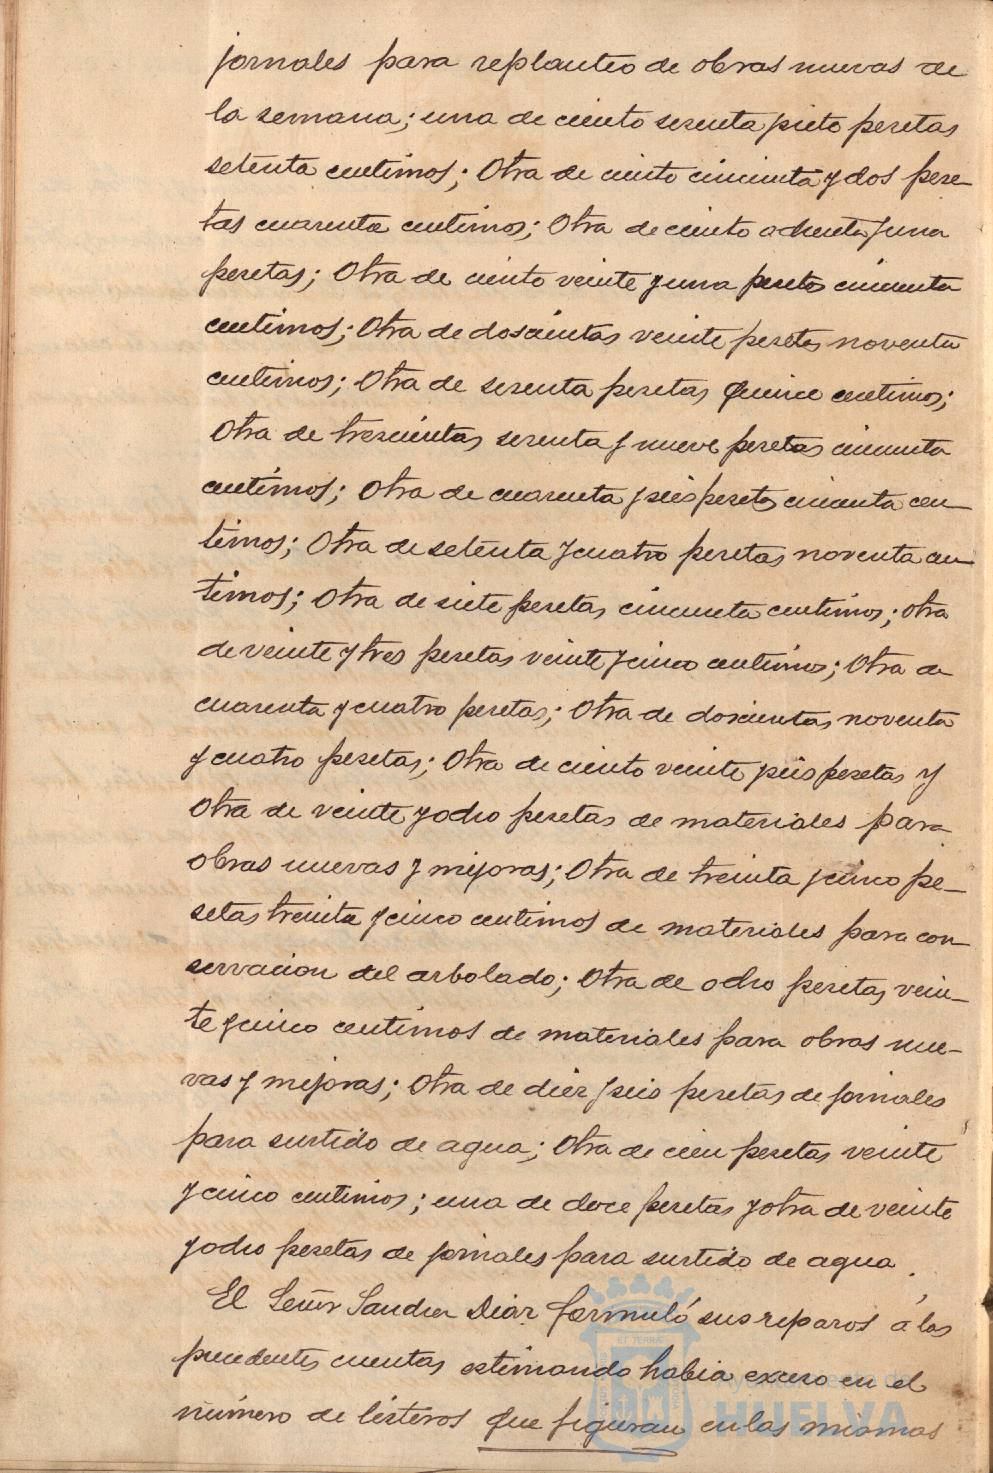 jornales para replanteo de obras nuevas de
la semana; una de ciento sesenta y siete pesetas
setenta centimos; Otra de ciento cincuenta y dos pese-
tas cuarenta centimos; Otra de ciento ochenta y una
pesetas; Otra de ciento veinte y una pesetas cincuenta
centimos; Otra de doscientas veinte pesetas noventa
centimos; Otra de sesenta pesetas quince centimos;
Otra de trescientas sesenta y nueve pesetas cincuenta
centimos; Otra de cuarenta y seis pesetas cincuenta cen-
timos; Otra de setenta y cuatro pesetas noventa cen-
timos; Otra de siete pesetas cincuenta centimos; otra
de veinte y tres pesetas veinte y cinco centimos; Otra de
cuarenta y cuatro pesetas; Otra de doscientas noventa
y cuatro pesetas; Otra de ciento veinte y seis pesetas y
Otra de veinte y ocho pesetas de materiales para
obras nuevas y mejoras; Otra de treinta y cinco pe-
setas treinta y cinco centimos de materiales para con-
servacion del arbolado; Otra de ocho pesetas, vein-
te y cinco centimos de materiales para obras nue-
vas y mejoras; Otra de diez y seis pesetas de jornales
para surtido de agua; Otra de cien pesetas veinte
y cinco centimos; una de doce pesetas y otra de veinte
y ocho pesetas de jornales para surtido de agua.
El Señor Sanchez Diaz formuló sus reparos á las
precedentes cuentas estimando habia exceso en el
número de listeros que figuran en las mismas
ET TERRA
Ayuntamiento de
HUELVA